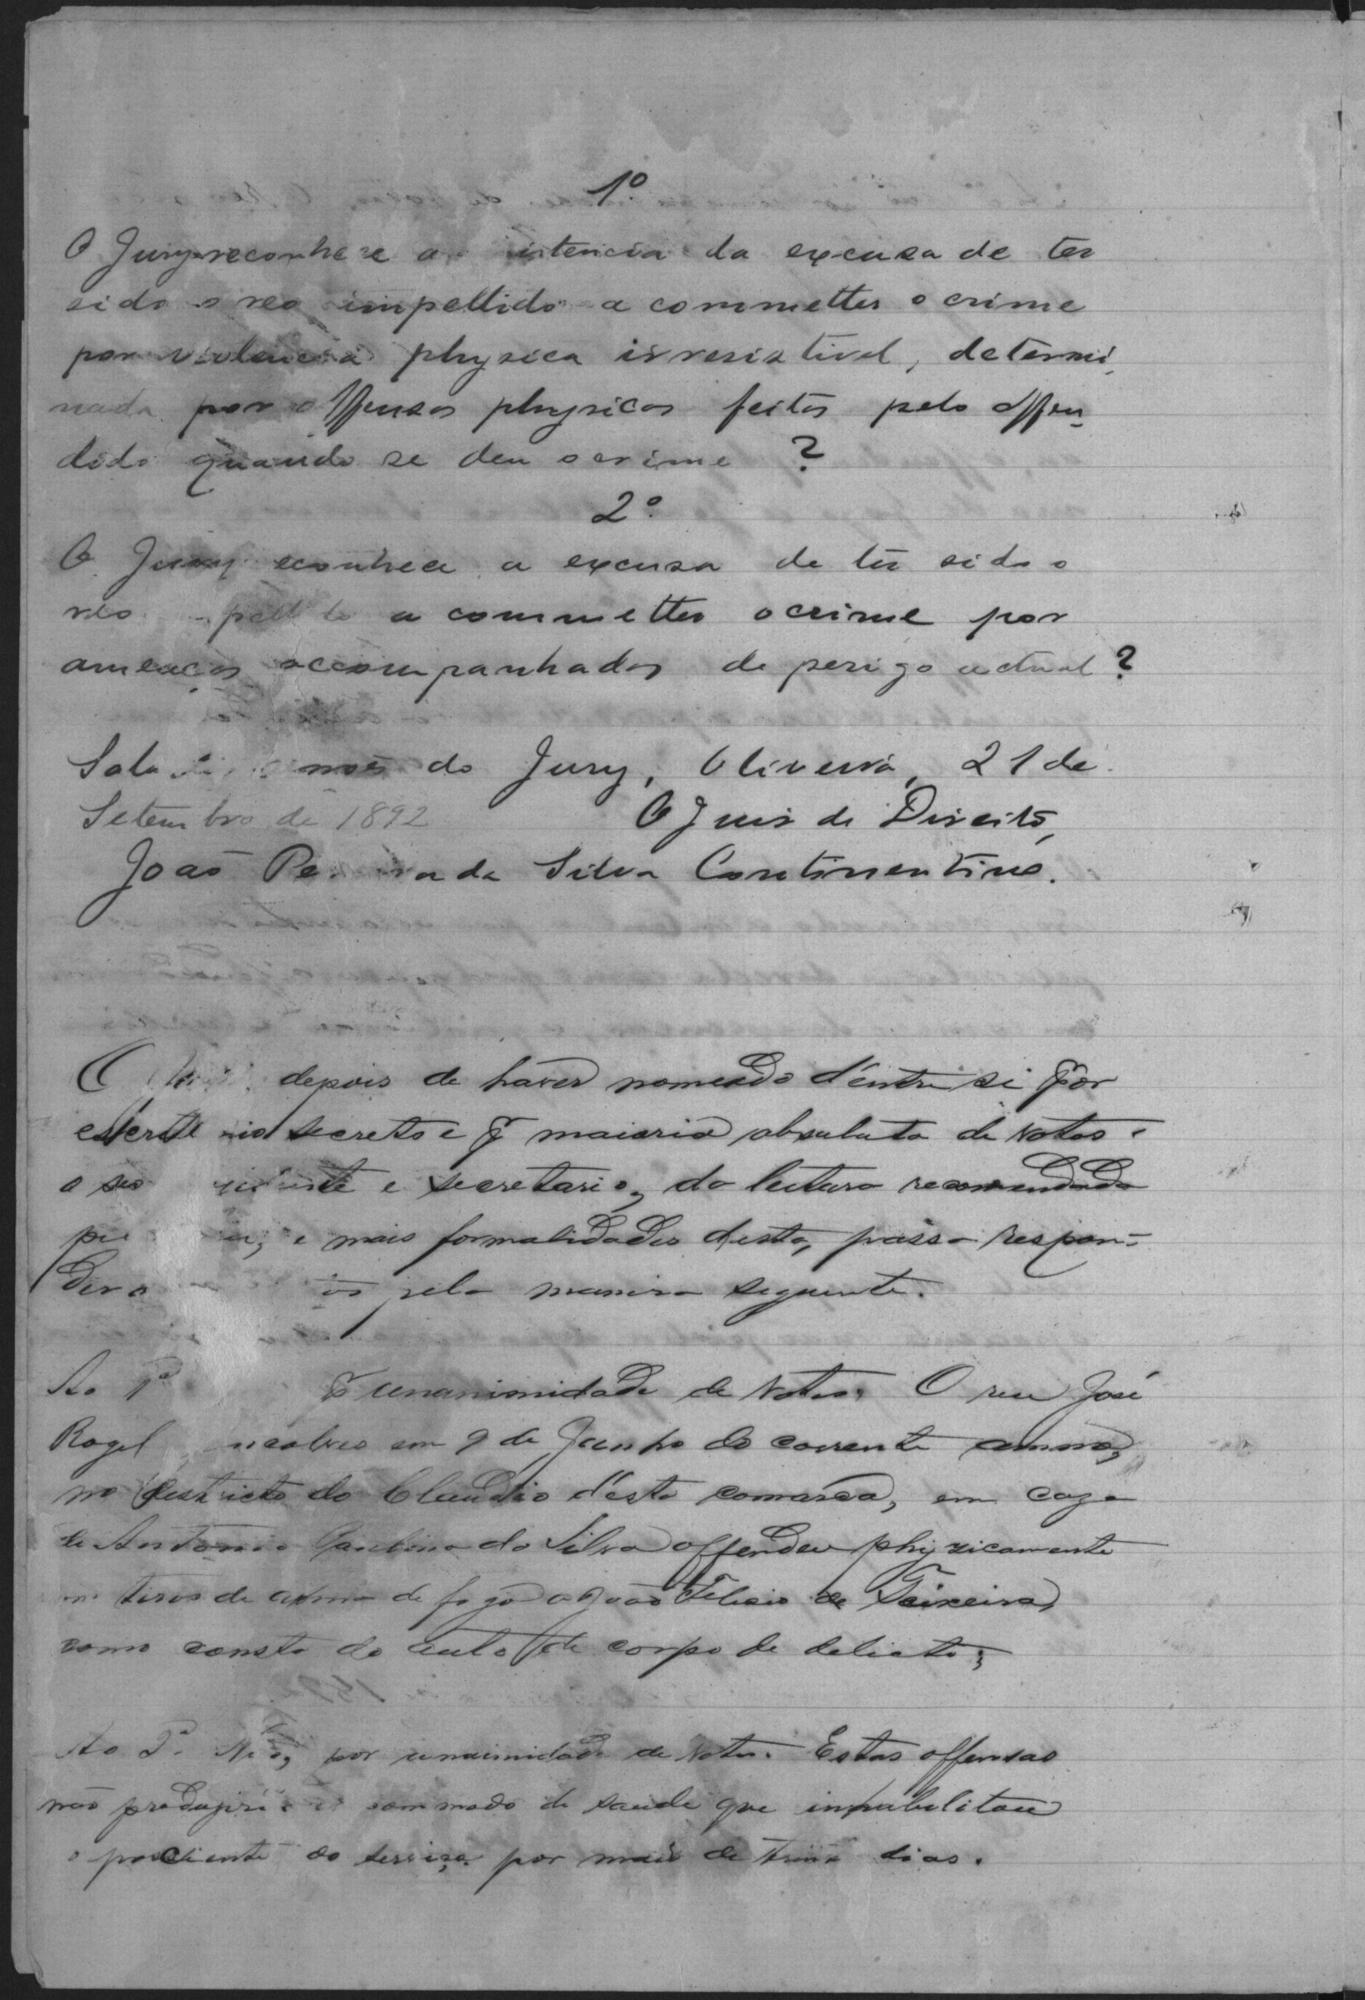 1º
O Jury reconhece a istencia da excusa de ter
sido o reo impellido a commetter o crime
por violencia physica irresistivel, determi,
nada por offensas physicas feitas pelo offen,
dido quando se deu o crime ?
2º.
O Jury econhece a excusa de ter sido o
reo pellido a commetter o crime por
ameaças accompanhadas de perigo actual ?
Sala do Jury, Oliveira, 21 de
Setembro de 1892 O Juis de Direito,
João Pe da Silva Continentino.
O depois de haver nomeado d'entre si por
escrutinio secreto e p maioria absoluta de votos
o seo e secretario, da leitura recomendada
e mais formalidades desta, passa respon-
der pela maneira seguinte.
Ao 1º unanimidade de votos. O reu José
Rogel em 9 de Junho do corrente anno,
no districto do Claudio d'esta comarca, em caza
de Antonio da Silva offendeu phyzicamente
tiros de arma de fogo a João Felicio de Teixeira,
como consta do auto de corpo de delicto;
Ao 2º. Não, por unanimidade de votos. Estas offensas
não produziri commodo de saude que inhabilitace
o paciente do serviço por mais de trinta dias.